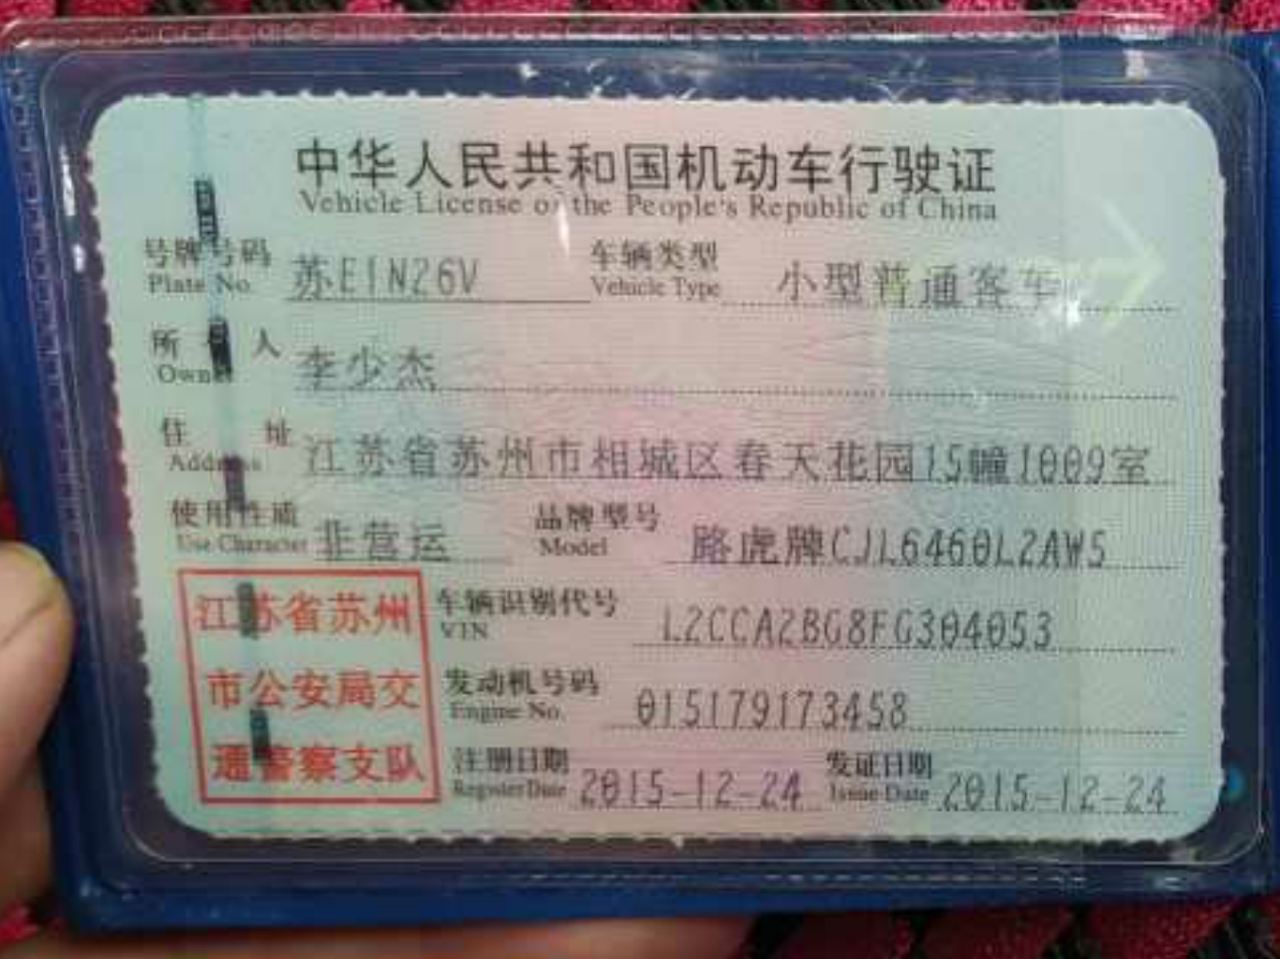 中华人民共和国机动车行驶证
Vehicle License of the People's Republic of China
号牌号码 苏E1N26V 车辆类型 小型普通客车
Plate No. Vehicle Type
所有人 李少杰
Owner
住址 江苏省苏州市相城区春天花园15幢1009室
Address
使用性质 非营运 品牌型号 路虎牌CJL6460L2AW5
Use Character Model
江苏省苏州 车辆识别代号 L2CCA2BG8FG304053
VIN
市公安局交 发动机号码 015179173458
Engine No.
通警察支队 注册日期 2015-12-24 发证日期 2015-12-24
Register Date Issue Date